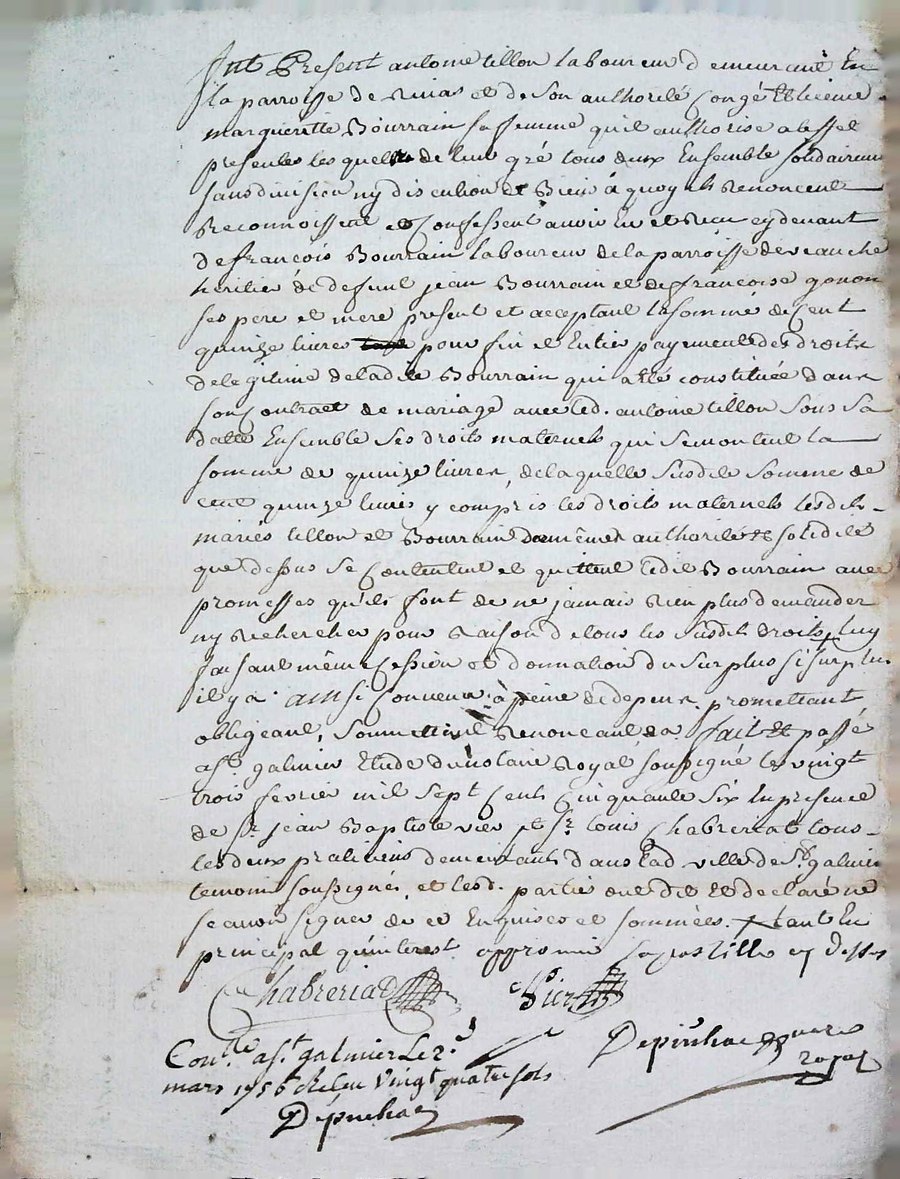 fut Present antoine tillon laboureur demeurant En
la parroisse de Rivas et de son authorité Congé et licence
margueritte Bourrain sa femme qu'il authorise a leffet
presentes les quels de leur gré tous deux Ensemble solidairem
sans division ny discution de Bien à quoy ils Renoncent
Reconnoissent et Confessent avoir Eu et Receu cy devant
de françois Bourrain laboureur de la parroisse de veauche
heritier de defunt jean Bourrain et de françoise gonon
ses pere et mere present et acceptant la somme de Cent
quinze livres pour fin et Entier payement des droits
de legitime de ladite Bourrain qui a été constituée dans
son Contract de mariage avec led. antoine tillon sous sa
datte Ensemble ses droits maternels qui se montent la
somme de quinze livres, de laquelle susdite somme de
cent quinze livres y compris les droits maternels lesdits
mariés tillon et Bourrain de mêmes authorité et solidité
que dessus se Contentent et quittent ledit Bourrain avec
promesses qu'ils font de ne jamais Rien plus demander
ny Rechercher pour Raison de tous les susdits droits, luy
faisant même Cession et donnation du surplus si surplus
il y a. ainsi Convenu à peine de depens, promettant
obligeant, soumettant Renonceant &a fait et passé
a st galmier Etude du notaire Royal soussigné le vingt
trois fevrier mil sept Cents Cinquante six En presence
de Sr jean Baptiste vier et Sr louis Chabreriat tous
les deux praticiens demeurants dans lad ville de St galmier
temoins soussignés, et lesd. parties ont dit et declaré ne
scavoir signer de ce Enquises et sommées. tant En
principal qu'interest approuvé l'apostille cy dessus
Chabreriat Vier
Con.lé a st galmier le 2.
mars 1756 Reçu vingt quatre sols
Depinhac
Depinhac nore
royal